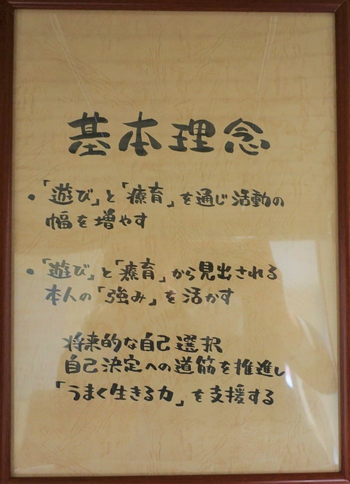 基本理念
・「遊び」と「療育」を通じ活動の
幅を増やす
・「遊び」と「療育」から見出される
本人の「強み」を活かす
将来的な自己選択
自己決定への道筋を推進し
「うまく生きる力」を支援する